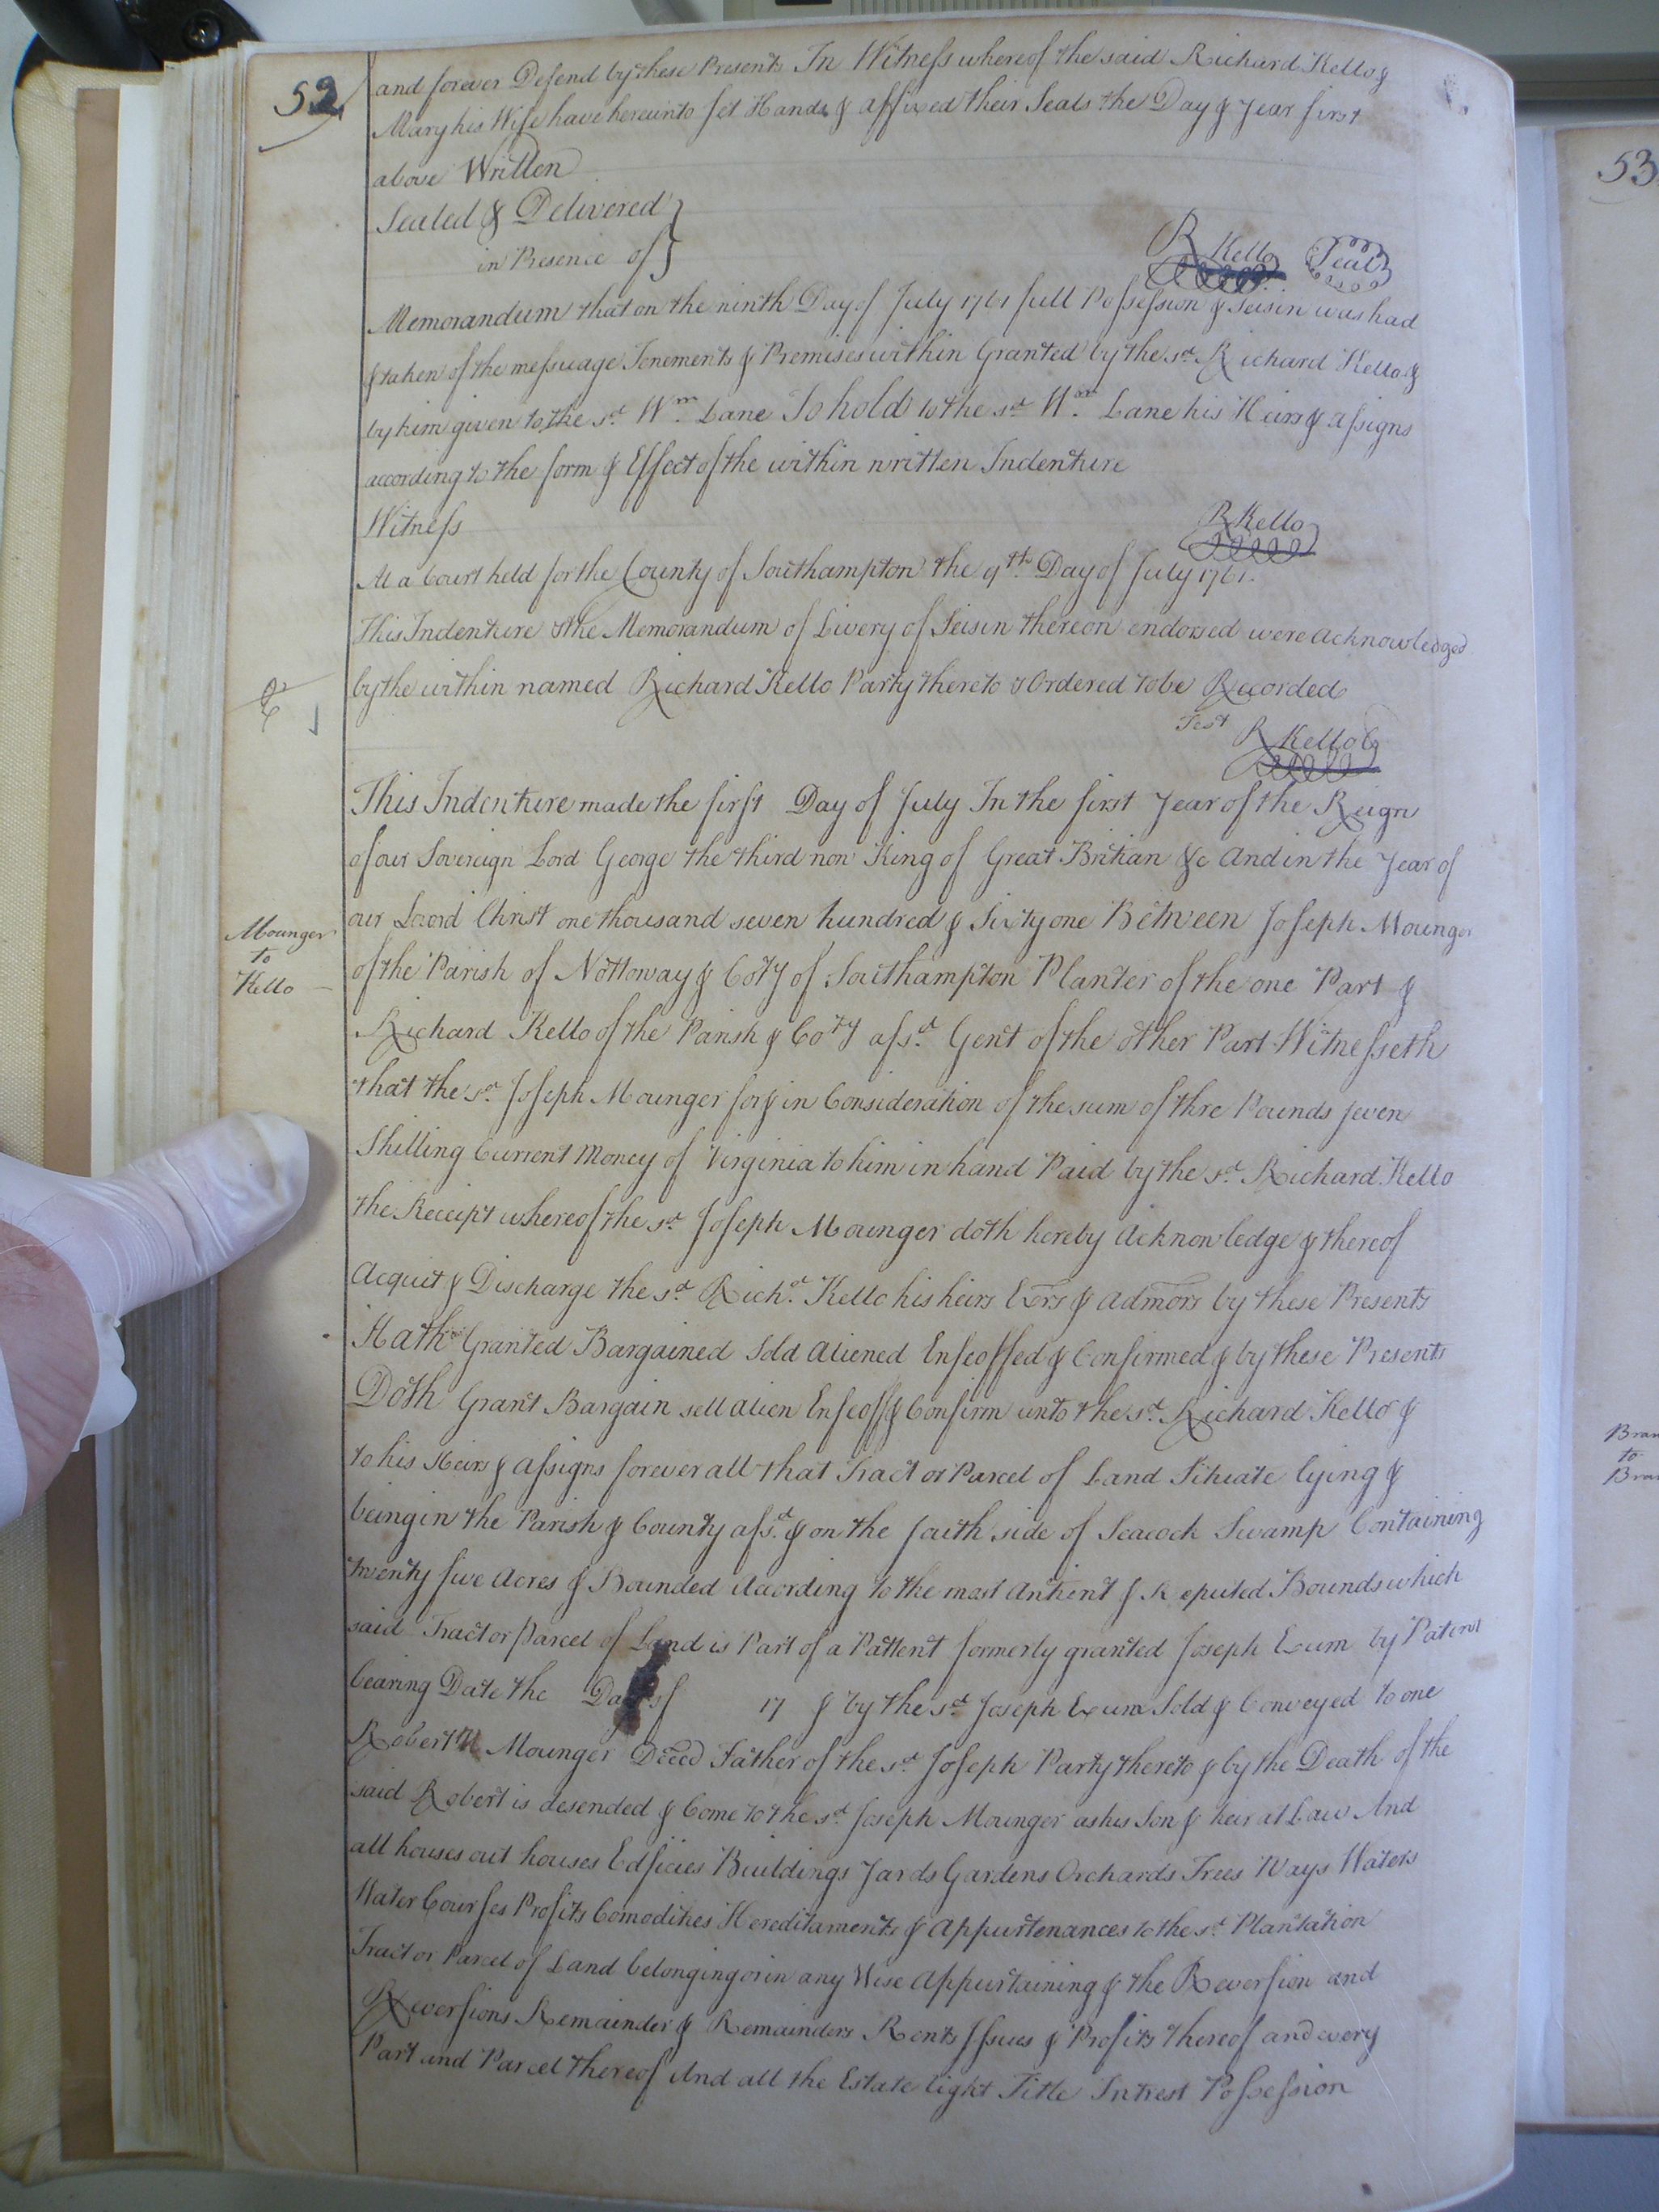 52
and forever Defend by these Presents In Witness whereof the said Richard Kello &
Mary his Wife have hereunto set Hands & affixed their Seals the Day & Year first
above Written
Sealed & Delivered }
in Presence of }
R Kello Seal
Memorandum that on the ninth Day of July 1761 full Possession & Seisin was had
& taken of the messuage Tenements & Premises within Granted by the sd. Richard Kello &
by him given to the sd. Wm. Lane To hold to the sd. Wm. Lane his Heirs & assigns
according to the form & Effect of the within written Indenture
Witness
R Kello
At a Court held for the County of Southampton the 9th. Day of July 1761.
This Indenture & the Memorandum of Livery of Seisin thereon endorsed were acknowledged
by the within named Richard Kello Party thereto & Ordered to be Recorded
Test R Kello
This Indenture made the first Day of July In the first Year of the Reign
of our Sovereign Lord George the third now King of Great Britian &c And in the Year of
our Loord Christ one thousand seven hundred & Sixty one Between Joseph Mounger
Mounger
to
Kello
of the Parish of Nottoway & Coty of Southampton Planter of the one Part &
Richard Kello of the Parish & Coty afsd. Gent of the other Part Witnesseth
that the sd. Joseph Mounger for & in Consideration of the sum of thre Pounds seven
Shilling Current Money of Virginia to him in hand Paid by the sd. Richard Kello
the Receipt whereof the sd. Joseph Mounger doth hereby acknowledge & thereof
Acquit & Discharge the sd. Richd. Kello his heirs Exrs & admors by these Presents
Hath Granted Bargained Sold aliened Enfeoffed & Confirmed & by these Presents
Doth Grant Bargain sell alien Enfeoff & Confirm unto the sd. Richard Kello &
to his Heirs & assigns forever all that Tract or Parcel of Land Situate lying &
being in the Parish & County afsd. & on the south side of Seacock Swamp Containing
twenty five Acres & Bounded according to the most antient & Reputed Bounds which
said Tract or Parcel of Land is Part of a Pattent formerly granted Joseph Exum by Patent
bearing Date the Day of 17 & by the sd. Joseph Exum Sold & Conveyed to one
Robert Mounger Deced Father of the sd. Joseph Party thereto & by the Death of the
said Robert is desended & Come to the sd. Joseph Mounger as his Son & heir at Law And
all houses out houses Edificies Buildings Yards Gardens Orchards Trees Ways Waters
Water Courses Profits Comodities Hereditaments & Appurtenances to the sd. Plantation
Tract or Parcel of Land belonging or in any Wise Appurtaining & the Reversion and
Reversions Remainder & Remainders Rents Issues & Profits thereof and every
Part and Parcel thereof And all the Estate light Title Intrest Possession
53
Bran
to
Bra